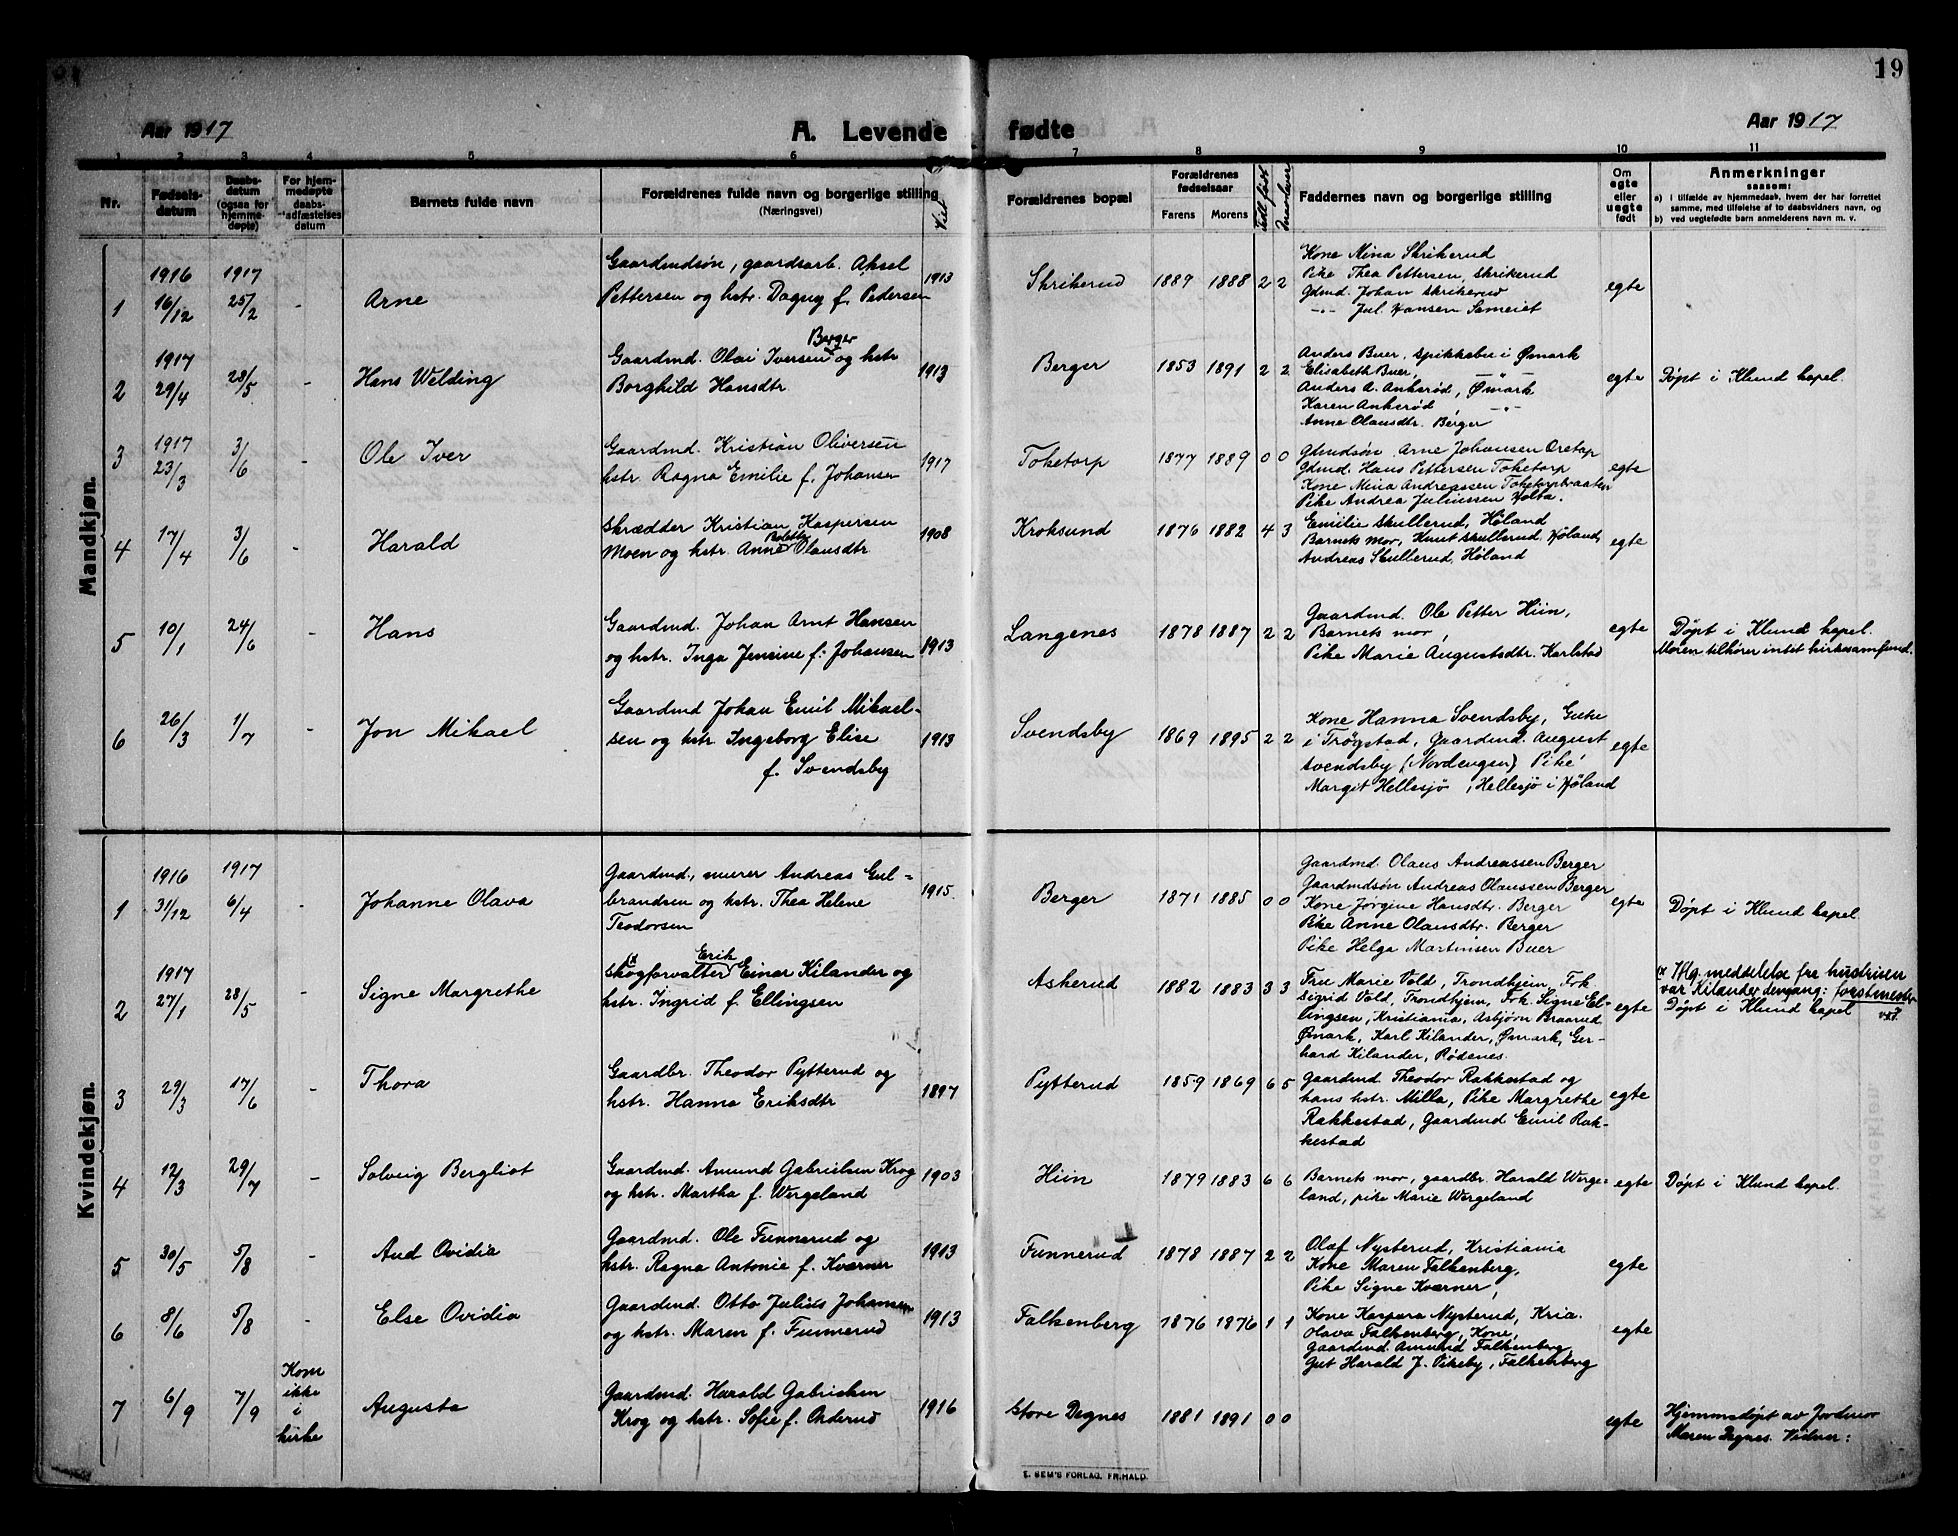 19
Aar 1917 A. Levende fødte Aar 1917
1 2 3 4 5 6 7 8 9 10 11
Nr.
Fødsels-
datum
Daabs-
datum
(ogsaa for
hjemme-
døpte)
For hjem-
medøpte
daabs-
stadfæstelses
datum
Barnets fulde navn
Forældrenes fulde navn og borgerlige stilling
(Næringsvei)
Viet
Forældrenes bopæl
Forældrenes
fødselsaar
Farens Morens
Faddernes navn og borgerlige stilling
Om
egte
eller
uegte
født
Anmerkninger
saasom:
a) I tilfælde av hjemmedaab, hvem der har forrettet
samme, med tilføielse af to daabsvidners navn, og
b) ved uegtefødte barn anmelderens navn m. v.
Mandkjøn.
1
1916
16/12
1917
25/2
-
Arne
Gaardmdsøn, gaardsarb. Aksel
Pettersen og hstr. Dagny f. Pedersen
1913
Skrikerud
1889 1888 2 2
Kone Mina Skrikerud
Pike Thea Pettersen, Skrikerud
Gdmd. Johan Skrikerud
-"- Jul. Hansen Sameiet
egte
2
1917
29/4
28/5
-
Hans Welding
Berger
Gaardmd. Olai Iversen og hstr
Borghild Hansdtr
1913
Berger
1853 1891 2 2
Anders Buer, Spikkebu i Ømark
Elisabeth Buer, -"-
Anders A. Ankerød, Ømark
Karen Ankerød, -"-
Anne Olausdtr. Berger
egte
Døpt i Klund kapel.
3
1917
23/3
3/6
-
Ole Iver
Gaardmd. Kristian Oliversen
hstr. Ragna Emilie f. Johansen
1917
Toketorp
1877 1889 0 0
Gmdsøn. Arne Johansen Oretop
Gdmd. Hans Pettersen Toketorp
Kone Mina Andreassen Toketorpbraaten
Pike Andrea Juliussen Holta.
egte
4
17/4
3/6
-
Harald
Skrædder Kristian Kaspersen
Moen og hstr. Anne Olausdtr
1908
Kroksund
1876 1882 4 3
Emilie Skullerud, Høland
Barnets mor, Knut Skullerud, Høland,
Andreas Skullerud, Høland
egte
5
10/1
24/6
-
Hans
Gaardmd. Johan Arnt Hansen
og hstr. Inga Jensine f. Johansen
1913
Langenes
1878 1887 2 2
Gaardmd. Ole Petter Hiin,
Barnets mor,
Pike Marie Augustsdtr. Karlstad
egte
Døpt i Klund kapel.
Moren tilhører intet kirkesamfund.
6
26/3
1/7
-
Jon Mikael
Gaardmd Johan Emil Mikael-
sen og hstr. Ingeborg Elise
f. Svendsby
1913
Svendsby
1869 1895 2 2
Kone Hanna Svendsby,
i Trøgstad, Gaardmd. August
Svendsby (Nordengen) Pike
Margit Hellesjø, Hellesjø i Høland
egte
Kvindekjøn.
1
1916
31/12
1917
6/4
-
Johanne Olava
Gaardmd., murer Andreas Gul-
brandsen og hstr. Thea Helene
Teodorsen
1915.
Berger
1871 1885 0 0
Gaardmd. Olaus Andreassen Berger
Gaardmdsøn Andreas Olaussen Berger
Kone Jørgine Hansdtr. Berger
Pike Anne Olausdtr. Berger
Pike Helga Martinsen Buer
egte
Døpt i Klund kapel.
2
1917
27/1
28/5
-
Signe Margrethe
Erik
Skogforvalter Einar Kilander og
hstr. Ingrid f. Ellingsen
Askerud
1882 1883 3 3
Fru Marie Vold, Trondhjem, Frk.
Sigrid Vold, Trondhjem, Frk. Signe El-
lingsen, Kristiania, Asbjørn Braarud
Ømark, Karl Kilander, Ømark, Ger-
hard Kilander, Rødenes.
egte
Iflg. meddelelse fra hustruen
var Kilander dengang: forstmester
Døpt i Klund kapel
3
29/3
17/6
-
Thora
Gaardbr. Theodor Pytterud og
hstr. Hanna Eriksdtr
1897
Pytterud
1859 1869 6 5
Gaardmd Theodor Rakkestad og
hans hstr. Milla, Pike Margrethe
Rakkestad, Gaardmd Emil Rak-
kestad
egte
4
12/3
29/7
-
Solveig Bergliot
Gaardmd. Amund Gabrielsen Krog
og hstr. Martha f. Wergeland
1903
Hiin
1879 1883 6 6
Barnets mor, gaardbr. Harald Werge-
land, pike Marie Wergeland
egte
Døpt i Klund kapel.
5
30/5
5/8
-
Aud Ovidia
Gaardmd. Ole Funnerud og
hstr. Ragna Antonie f. Kværner
1913
Funnerud
1878 1887 2 2
Olaf Nysterud, Kristiania
Kone Maren Falkenberg,
Pike Signe Kværner,
egte
6
8/6
5/8
-
Else Ovidia
Gaardmd. Otto Julius Johansen
og hstr. Maren f. Funnerud
1913
Falkenberg
1876 1876 1 1
Kone Kaspara Nysterud, Kria.
Olava Falkenberg, Kone,
Gaardmd. Amund Falkenberg
Gut Harald J. Vikeby, Falkenberg
egte
7
6/9
7/9
Kom
ikke
i
kirke
Augusta
Gaardmd. Harald Gabrielsen
Krog og hstr. Sofie f. Orderud
1916
Store Degnes
1881 1891 0 0
egte
Hjemmedøpt av Jordmor
Maren Degnes. Vidner:
E. SEM'S FORLAG, FR.HALD.